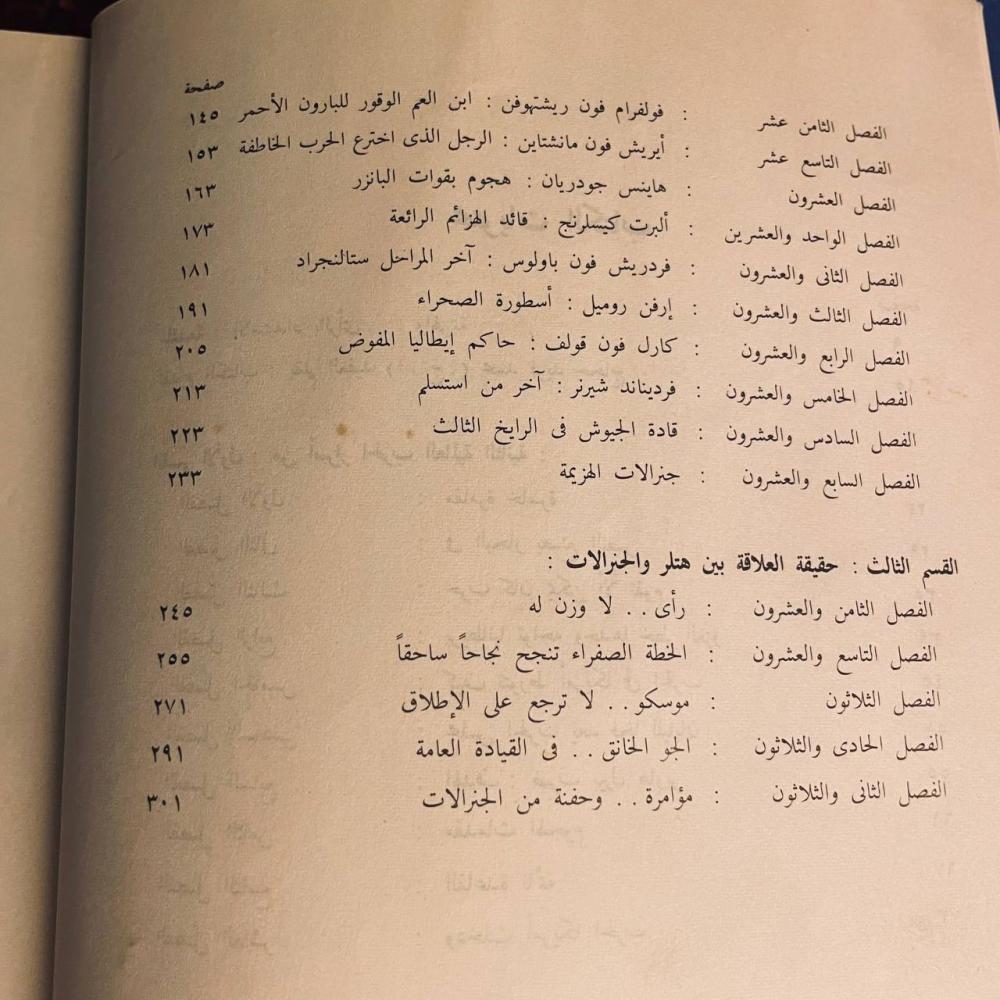 صفحة
الفصل الثامن عشر : فولفرام فون ريشتهوفن : ابن العم الوقور للبارون الأحمر ١٤٥
الفصل التاسع عشر : أيريش فون مانشتاين : الرجل الذى اخترع الحرب الخاطفة ١٥٣
الفصل العشرون : هاينس جودريان : هجوم بقوات البانزر ١٦٣
الفصل الواحد والعشرين : ألبرت كيسلرنج : قائد الهزائم الرائعة ١٧٣
الفصل الثانى والعشرون : فردريش فون باولوس : آخر المراحل ستالنجراد ١٨١
الفصل الثالث والعشرون : إرفن روميل : أسطورة الصحراء ١٩١
الفصل الرابع والعشرون : كارل فون قولف : حاكم إيطاليا المفوض ٢٠٥
الفصل الخامس والعشرون : فرديناند شيرنر : آخر من استسلم ٢١٣
الفصل السادس والعشرون : قادة الجيوش فى الرايخ الثالث ٢٢٣
الفصل السابع والعشرون : جنرالات الهزيمة ٢٣٣
القسم الثالث : حقيقة العلاقة بين هتلر والجنرالات :
الفصل الثامن والعشرون : رأى . . لا وزن له ٢٤٥
الفصل التاسع والعشرون : الخطة الصفراء تنجح نجاحاً ساحقاً ٢٥٥
الفصل الثلاثون : موسكو . . لا ترجع على الإطلاق ٢٧١
الفصل الحادى والثلاثون : الجو الخانق . . فى القيادة العامة ٢٩١
الفصل الثانى والثلاثون : مؤامرة . . وحفنة من الجنرالات ٣٠١